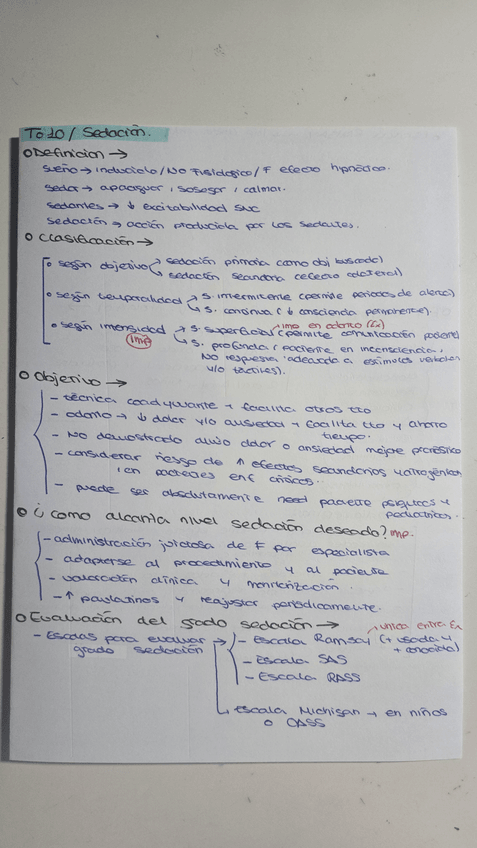 To 10 / Sedación.
Definicion →
sueño → inducido / NO Fisiológico / F efecto hipnótico.
sedar → apaciguar, sosegar, calmar.
sedantes → ↓ excitabilidad SNC
sedación → acción producida por los sedantes.
Clasificación →
• según objetivo → sedación primaria como obj buscado)
→ sedación secundaria (efecto colateral)
• según temporalidad → S. intermitente (permite periodos de alerta)
→ S. continua (↓ consciencia permanente).
imp en odonto (Ex)
• según intensidad → S. superficial (permite comunicación paciente)
imp → S. profunda (paciente en inconsciencia,
NO respuesta adecuada a estímulos verbales
y/o táctiles).
Objetivo →
- técnica coadyuvante → facilita otros tto
- odonto → ↓ dolor y/o ansiedad → facilita tto y ahorro
tiempo.
- NO demostrado alivio dolor o ansiedad mejore pronóstico
- considerar riesgo de ↑ efectos secundarios yatrogénicos
en pacientes enf críticos.
- puede ser absolutamente need paciente psíquicos y
pediátricos.
¿Como alcanza nivel sedación deseado? imp.
- administración juiciosa de F por especialista
- adaptarse al procedimiento y al paciente
- valoración clínica y monitorización.
- ↑ paulatinos y reajustar periódicamente.
Evaluación del grado sedación →
única entra Ex
- Escalas para evaluar → - Escala Ramsay (+ usada y
grado sedación + conocida)
- Escala SAS
- Escala RASS
→ Escala Michigan → en niños
o OASS